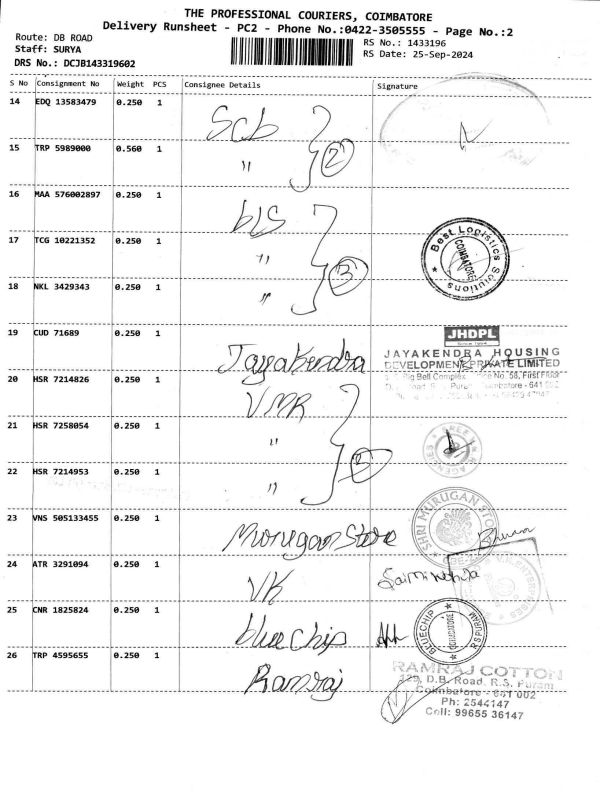 THE PROFESSIONAL COURIERS, COIMBATORE
Delivery Runsheet - PC2 - Phone No.:0422-3505555 - Page No.:2
Route: DB ROAD
Staff: SURYA
DRS No.: DCJB143319602
RS No.: 1433196
RS Date: 25-Sep-2024
S No Consignment No Weight PCS Consignee Details Signature
14 EDQ 13583479 0.250 1 Scb
15 TRP 5989000 0.560 1 " 2
16 MAA 576002897 0.250 1 bLS
17 TCG 10221352 0.250 1 " 3
18 NKL 3429343 0.250 1 "
Best Logistics Solutions
COIMBATORE
19 CUD 71689 0.250 1 Jayakendra
JHDPL
JAYAKENDRA HOUSING
DEVELOPMENT PRIVATE LIMITED
Big Bell Complex No. 58, First Floor
Coimbatore - 641 002
20 HSR 7214826 0.250 1 VMR
21 HSR 7258054 0.250 1 "
22 HSR 7214953 0.250 1 "
SREE
AGENCIES
23 VNS 505133455 0.250 1 Murugan Store
SHRI MURUGAN STORE
24 ATR 3291094 0.250 1 VK
25 CNR 1825824 0.250 1 bluechip
BLUECHIP
COIMBATORE
RSPURAM
26 TRP 4595655 0.250 1 Ramraj
RAMRAJ COTTON
129, D.B. Road, R.S. Puram
Coimbatore - 641 002
Ph: 2544147
Cell: 99655 36147